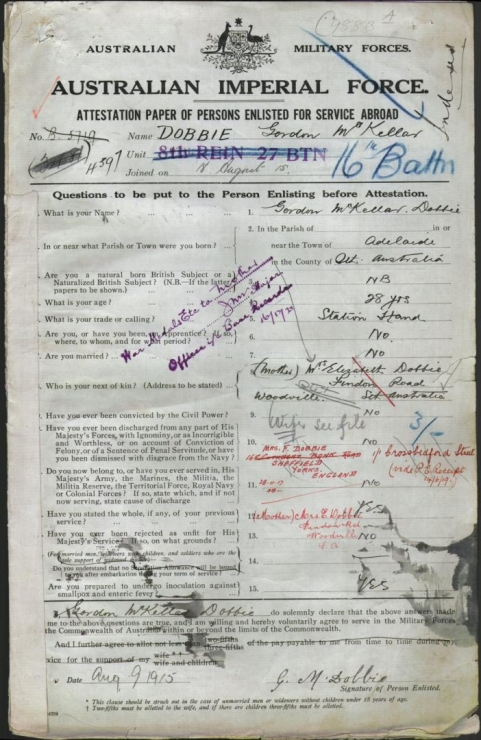 AUSTRALIAN MILITARY FORCES.
AUSTRALIAN IMPERIAL FORCE.
ATTESTATION PAPER OF PERSONS ENLISTED FOR SERVICE ABROAD
No. B-5719 Name DOBBIE Gordon McKellar
4597 Unit 8th REIN 27 BTN 16th Battn
Joined on August 15.
Questions to be put to the Person Enlisting before Attestation.
What is your Name? ... 1. Gordon McKellar Dobbie
2. In the Parish of in or
In or near what Parish or Town were you born? near the Town of Adelaide
in the County of Australia
Are you a natural born British Subject or a
Naturalized British Subject? (N.B.—If the latter
papers to be shown.) 3. NB
What is your age? 28 yrs
What is your trade or calling? 5. Station Hand
Are you, or have you been, an Apprentice? If so,
where, to whom, and for what period? No
Are you married? 7. No
War Medals Etc to brother
Major
Officer i/c Base Records
Who is your next of kin? (Address to be stated)
(Mother) Mrs Elizabeth Dobbie
Findon Road
Woodville. Sth Australia
Wife see file
3/-
Have you ever been convicted by the Civil Power? 9. No
Have you ever been discharged from any part of His
Majesty's Forces, with Ignominy, or as Incorrigible
and Worthless, or on account of Conviction of
Felony, or of a Sentence of Penal Servitude, or have
you been dismissed with disgrace from the Navy? 10.
MRS. F. DOBBIE
SHEFFIELD
YORKS.
ENGLAND
Do you now belong to, or have you ever served, in, His
Majesty's Army, the Marines, the Militia, the
Militia Reserve, the Territorial Force, Royal Navy
or Colonial Forces? If so, state which, and if not
now serving, state cause of discharge 11.
Have you stated the whole, if any, of your previous
service? 12. Yes
(Mother) Mrs E. Dobbie
Findon Rd
Woodville
S.A
Have you ever been rejected as unfit for His
Majesty's Service? If so, on what grounds? 13. No
(For married men, widowers with children, and soldiers who are the
sole support of widowed
Do you understand that no Separation Allowance will be issued
after embarkation during your term of service? 14.
Are you prepared to undergo inoculation against
smallpox and enteric fever? 15. YES
I, Gordon McKellar Dobbie do solemnly declare that the above answers made
me to the above questions are true, and I am willing and hereby voluntarily agree to serve in the Military Forces
the Commonwealth of Australia within or beyond the limits of the Commonwealth.
And I further agree to allot not less than of the pay payable to me from time to time during my
service for the support of my wife
wife and children
Date Aug 9 1915 G. M. Dobbie
Signature of Person Enlisted.
* This clause should be struck out in the case of unmarried men or widowers without children under 18 years of age.
† Two-fifths must be allotted to the wife, and if there are children three-fifths must be allotted.